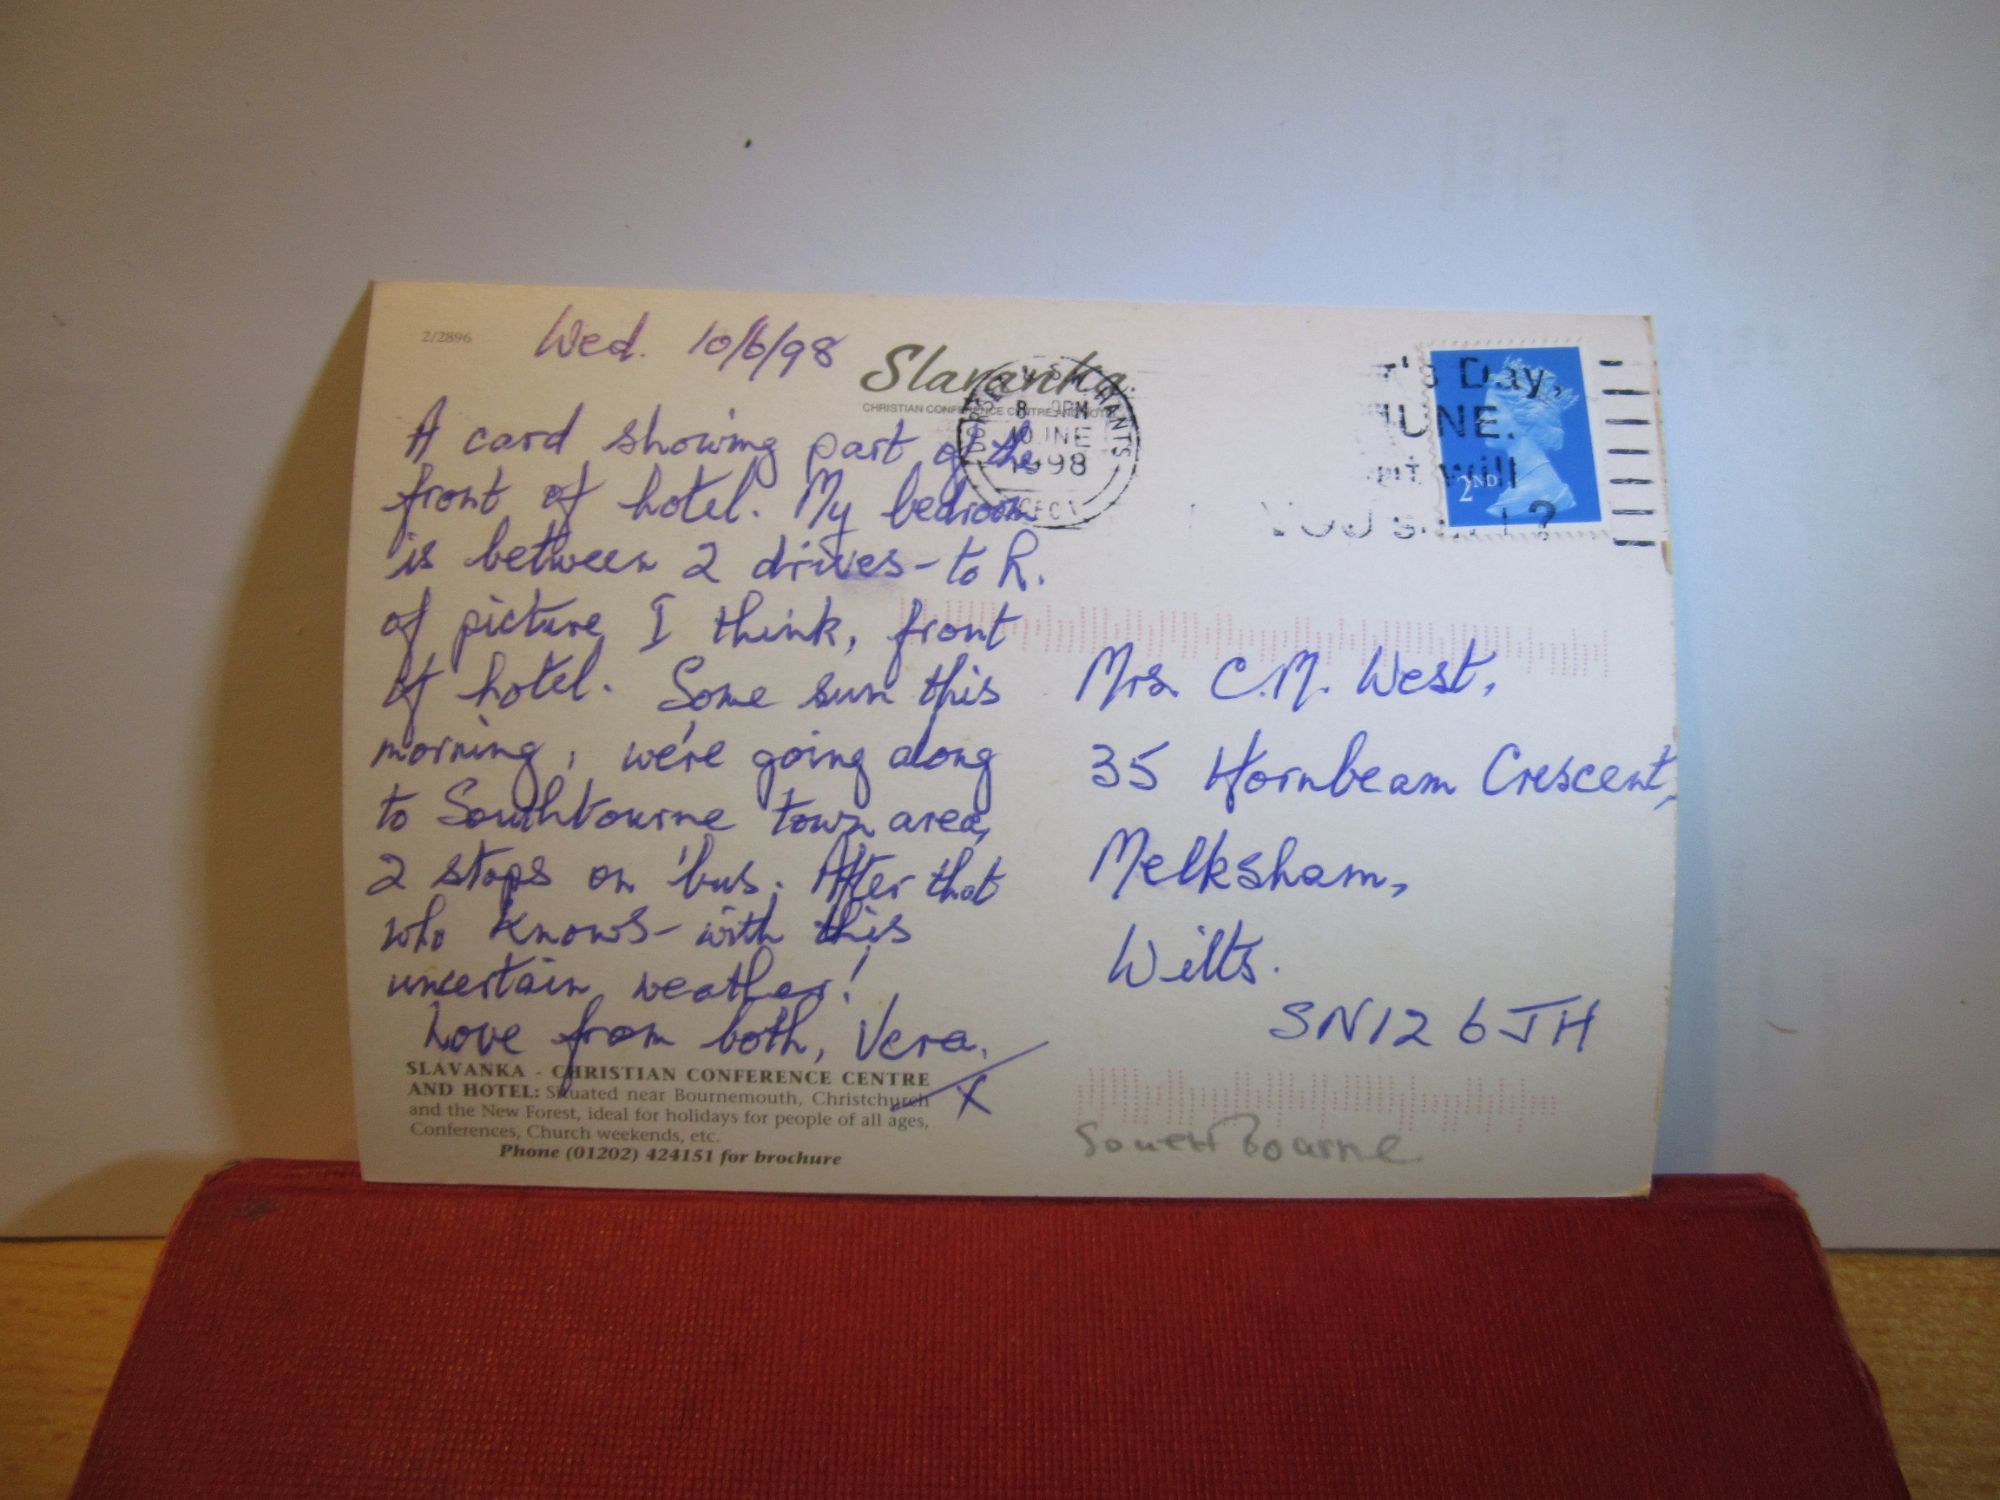 2/2896
Wed. 10/6/98
Slavanka
CHRISTIAN CONFERENCE CENTRE AND HOTEL
A card showing part of the
front of hotel. My bedroom
is between 2 drives - to R.
of picture, I think, front
of hotel. Some sun this
morning, we're going along
to Southbourne town area,
2 stops on 'bus. After that
who knows - with this
uncertain weather!
Love from both, Vera.
X
SLAVANKA - CHRISTIAN CONFERENCE CENTRE
AND HOTEL: Situated near Bournemouth, Christchurch
and the New Forest, ideal for holidays for people of all ages,
Conferences, Church weekends, etc.
Phone (01202) 424151 for brochure
HANTS
8 PM
10 JNE
1998
's Day,
JUNE.
will
?
2ND
Mrs. C.M. West,
35 Hornbeam Crescent,
Melksham,
Wilts.
SN12 6JH
Southbourne